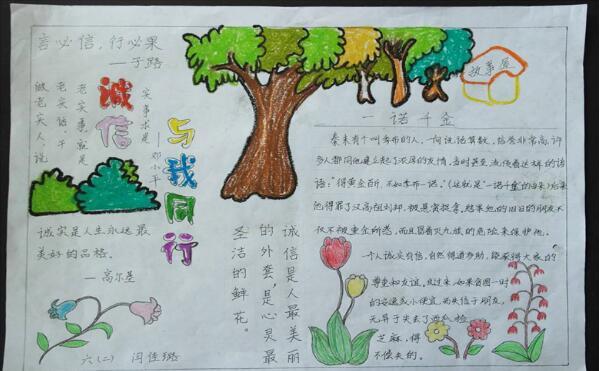 言必信，行必果
——子路
诚信
与我同行
做老实人，说
老实话，干
老实事，就是
实事求是
——邓小平
诚实是人生永远最
美好的品格。
——高尔基
六（二） 闫佳璐
诚信是人最美丽
的外套，是心灵最
圣洁的鲜花。
故事屋
一诺千金
秦末有个叫季布的人，一向说话算数，信誉非常高，许
多人都同他建立起了浓厚的友情。当时甚至流传着这样的谚
语："得黄金百斤，不如季布一诺。"（这就是"一诺千金"的由来）后来
他得罪了汉高祖刘邦，被悬赏捉拿。结果他的旧日的朋友不
仅不被重金所惑，而且冒着灭九族的危险来保护他。
一个人诚实有信，自然得道多助，能获得大家的
尊重和友谊。反过来，如果贪图一时
的安逸或小便宜，而失信于朋友，
无异于失去了西瓜捡
芝麻，得
不偿失的。